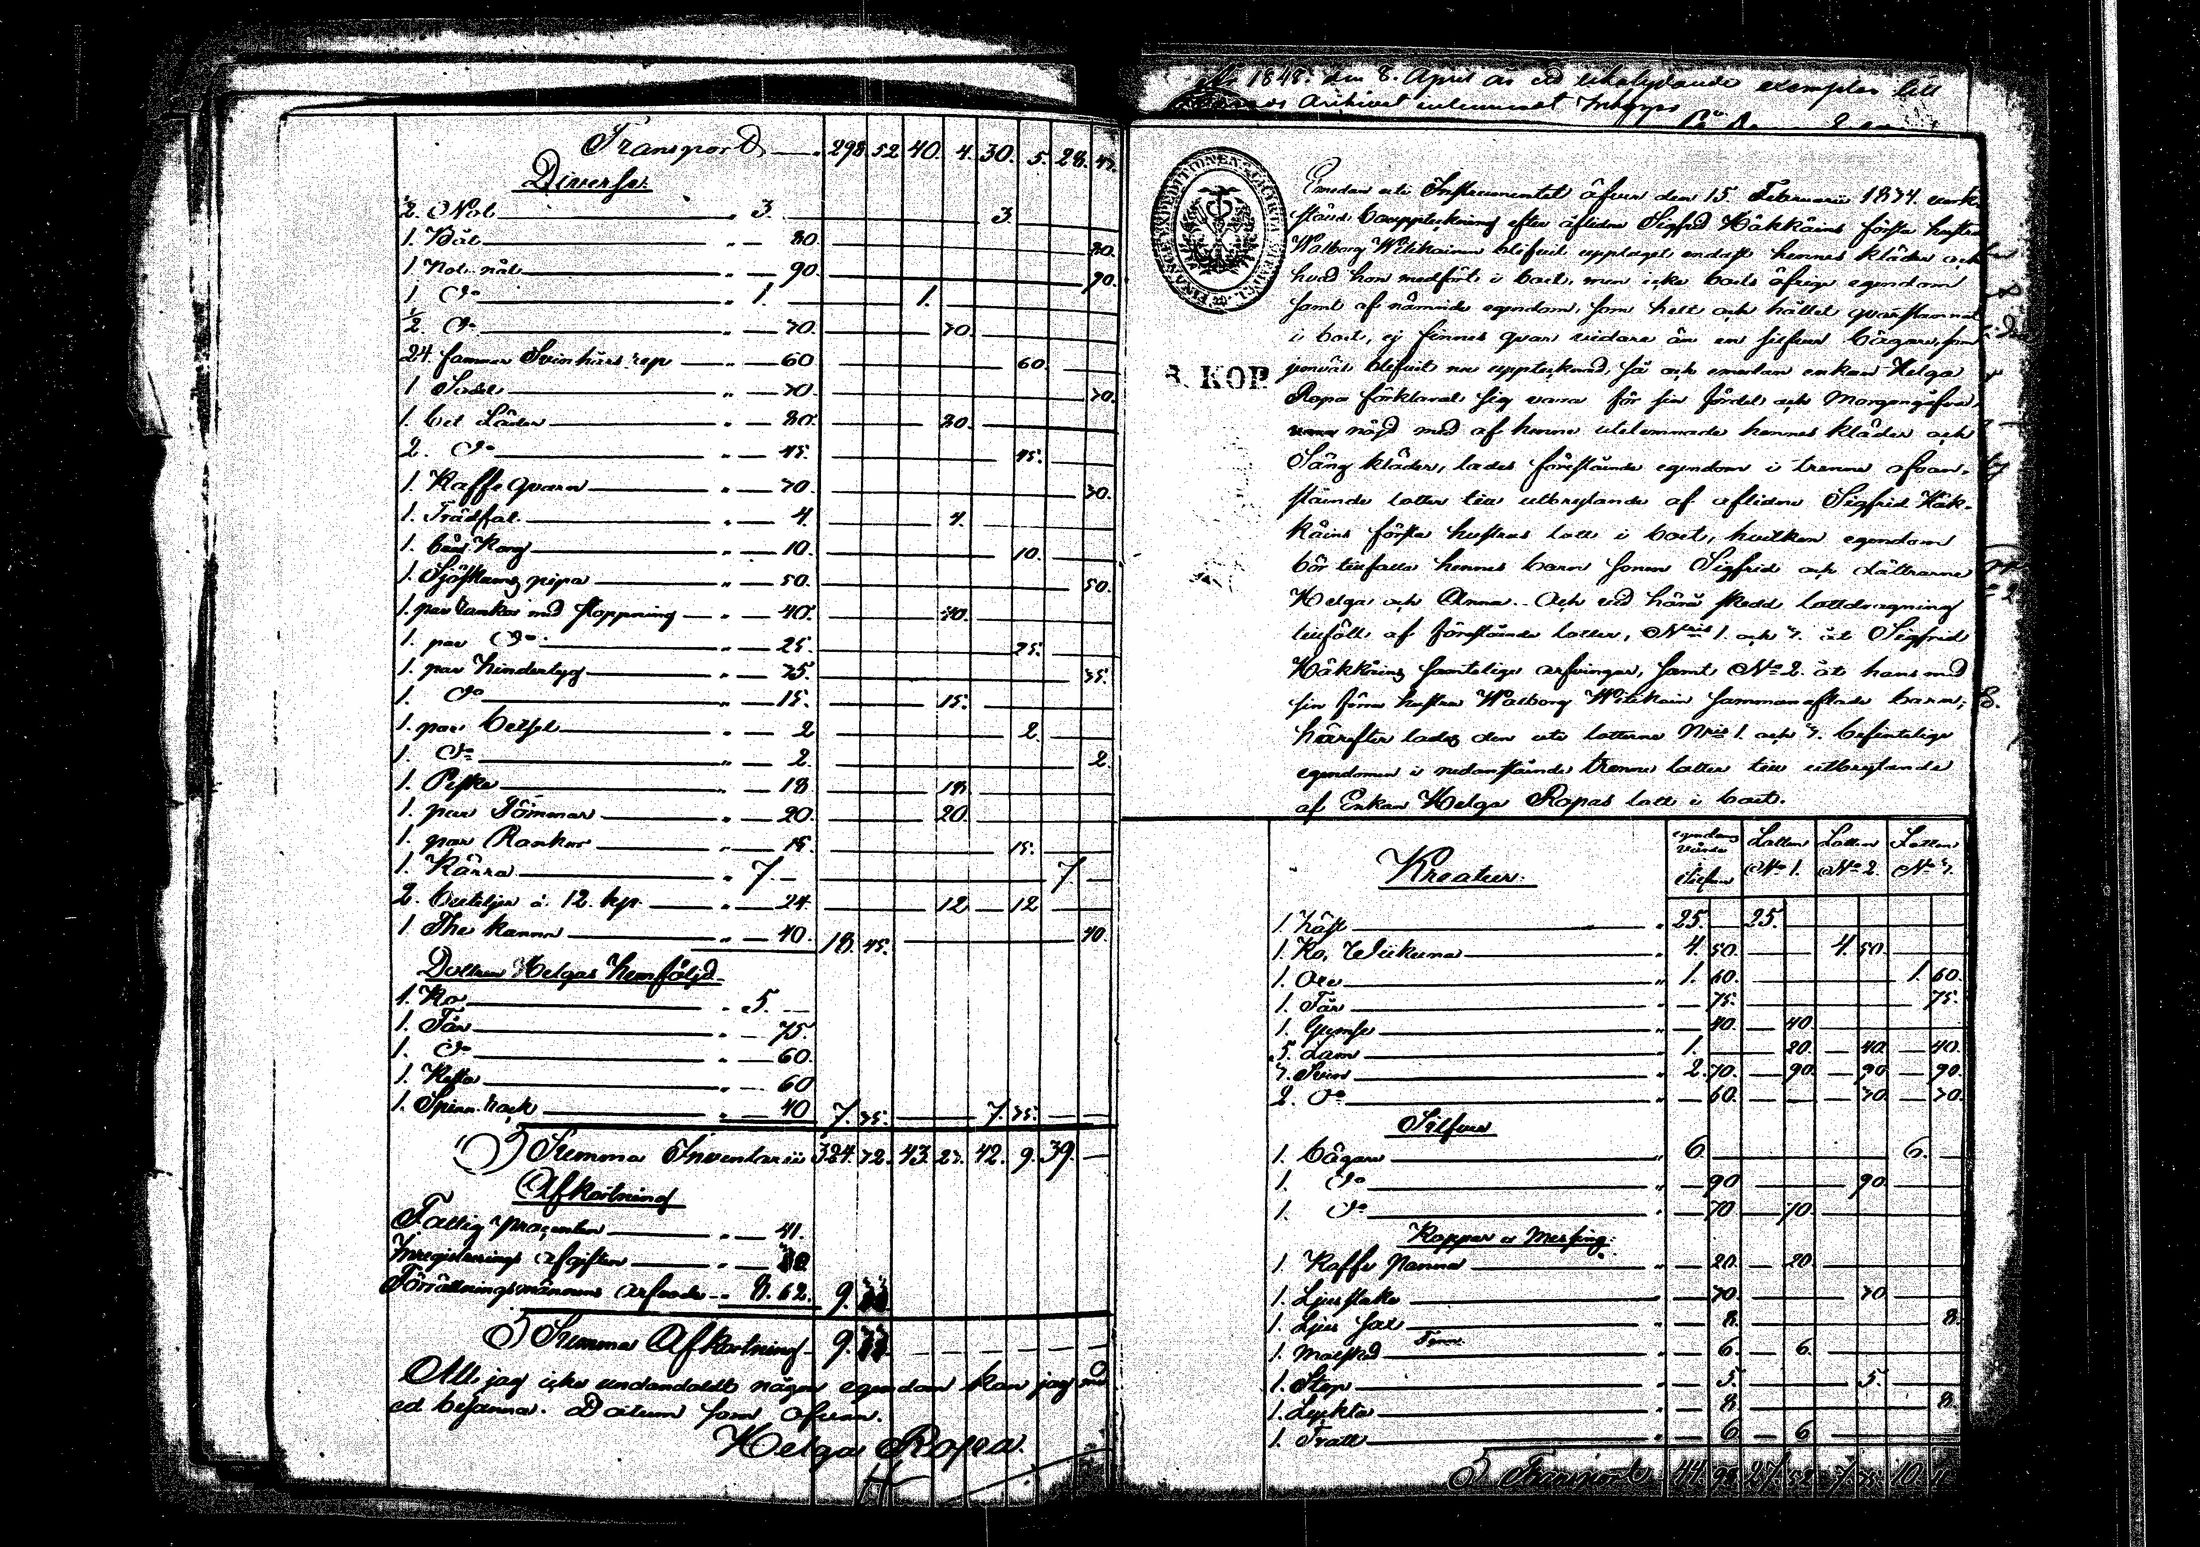 Transport 298 52 40. 4. 30. 5. 28. 47.
Diverse.
½. Not 3. 3
1. Båt 80. 80.
1 Not 90. 90.
1 do 1. 1.
½. do 70. 70.
24. famnar Svinhårs rep 60 60
1 Sadel 70. 70.
1. bit Läder 80. 80.
2. do 45. 45.
1. Kaffe qvarn 70. 70.
1. Trädfat 4. 4.
1. Korg 10. 10.
1. Sjöskums pipa 50. 50.
1. par rankor med stoppning 40. 40.
1. par do 25. 25.
1. par hindertyg 75. 75.
1. do 15. 15.
1. par betsel 2 2.
1. do 2. 2
1. Piska 18 18
1. par Tömmar 20. 20.
1. par Rankor 15. 15.
1. Kärra 7. 7
2. buteljer à 12. kp. 24. 12 12
1 The kanna 40. 18. 45. 40.
Dottren Helgas hemföljd
1. Ko 5.
1. Får 75.
1. do 60.
1. Kista 60
1. Spinn rock 40 7. 35. 7. 35.
Summa Inventarii 324. 72. 43. 27. 42. 9. 39.
Afkortning
Fattig procenten 41.
Inregistrerings afgiften
Förrättningsmännens arfvode 8. 62. 9.
Summa Afkortning 9.
Att jag icke undandoldt någon egendom kan jag med
ed besanna. Datum som ofvan.
Helga Ropa
1848: den 8. April är ett likalydande exemplar till
archivet inlemnadt
Emedan uti Instrumentet öfver den 15. Februarii 1834. verk-
ställd bouppteckning efter aflidne Sigfrid Häkkäins första hustru
Walborg Witikainen blifvit upptaget endast hennes kläder och
hvad hon medfört i boet, men icke boets öfriga egendom
samt af nämnde egendom, som helt och hållet qvarstannat
i boet, ej finnes qvar vidare än en silfver bägare, som
jemväl blifvit nu upptecknad, så och emedan enkan Helga
Ropa förklarat sig vara för sin fördel och Morgongåfva
nöjd med af henne utelemnade hennes kläder och
Säng kläder, lades föreståënde egendom i trenne ofvan-
stående lotter till utbrytande af aflidne Sigfrid Häk-
käins första hustrus lott i boet, hvilken egendom
bör tillfalla hennes barn sonen Sigfrid och döttrarne
Helga och Anna. Och vid härå skedd lottdragning
tillföll af förestående lotter, Nris 1. och 3. åt Sigfrid
Häkkäins samtelige arfvingar, samt No 2. åt hans med
sin förra hustru Walborg Witikain sammanaflade barn;
härefter lades den uti lotterne Nris 1. och 3. befintelige
egendomen i nedanstående trenne lotter till utbrytande
af Enkan Helga Ropas lott i boet.
B. KOP
Kreatur. egendoms värde i Silfver Lotten No 1. Lotten No 2. Lotten No 3.
1 häst 25. 25.
1. Ko, 4. 50. 4. 50.
1. Oxe 1. 60. 1. 60.
1. Får 75. 75.
1. Gumse 40. 40.
5. Lam 1. 20. 40. 40.
3. Svin 2. 70. 90. 90. 90.
2. do 60.
Silfver
1. bägare 6. 6.
1. do 90 90.
1. do 70 70.
Koppar o Messing.
1 Kaffe Panna 20. 20.
1. Ljusstake 70. 70
1. Ljus sax 8. 8.
Tenn
1. Matsked 6. 6.
1. Stop 5. 5.
1. Lyckta 8 8.
1. Tratt 6. 6.
Transport 44. 98. 27.